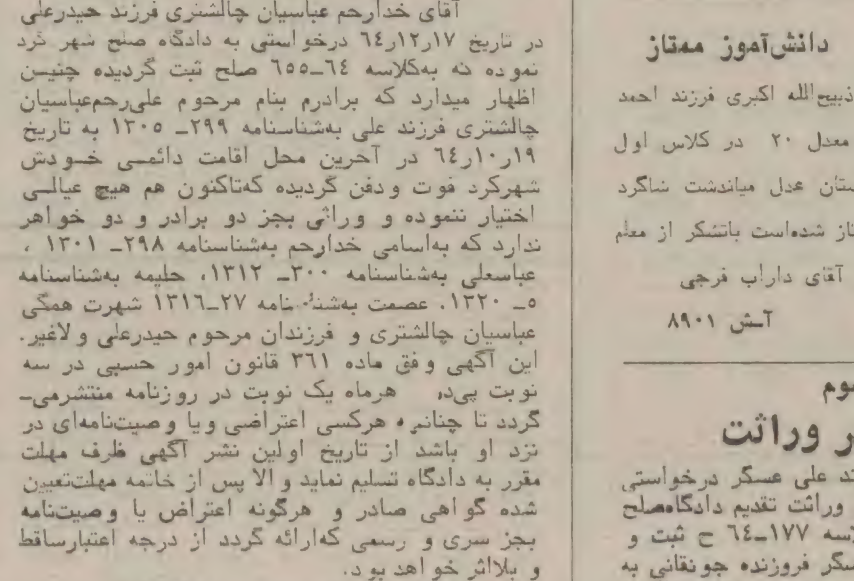 آقای خدارحم عباسیان چالشتری فرزند حیدرعلی
در تاریخ ۶۴ر۱۲ر۱۷ درخواستی به دادگاه صلح شهر کرد
نموده که به‌کلاسه ۶۴ـ۶۵۵ صلح ثبت گردیده چنیـن
اظهار میدارد که برادرم بنام مرحوم علی‌رحم‌عباسیان
چالشتری فرزند علی به‌شناسنامه ۲۹۹ـ ۱۳۰۵ به تاریخ
۶۴ر۱۰ر۱۹ در آخرین محل اقامت دائمـی خـودش
شهرکرد فوت و دفن گردیده که‌تاکنون هم هیچ عیالـی
اختیار ننموده و وراثی بجز دو برادر و دو خواهر
ندارد که به‌اسامی خدارحم به‌شناسنامه ۲۹۸ـ ۱۳۰۱ ،
عباسعلی به‌شناسنامه ۳۰۰ـ ۱۳۱۲، حلیمه به‌شناسنامه
۵ـ ۱۳۲۰. عصمت به‌شنـ نامه ۲۷ـ۱۳۱۶ شهرت همگی
عباسیان چالشتری و فرزندان مرحوم حیدرعلی ولاغیر.
این آگهی وفق ماده ۳۶۱ قانون امور حسبی در سه
نوبت پی‌در هرماه یک نوبت در روزنامه منتشرمی‌ـ
گردد تا چنانچه هرکسی اعتراضی ویا وصیت‌نامه‌ای در
نزد او باشد از تاریخ اولین نشر آگهی ظرف مهلت
مقرر به دادگاه تسلیم نماید و الا پس از خاتمه مهلت‌تعیین
شده گواهی صادر و هرگونه اعتراض یا وصیت‌نامه
بجز سری و رسمی که‌ارائه گردد از درجه اعتبارساقط
و بلااثر خواهد بود.
دانش‌آموز ممتاز
ذبیح‌الله اکبری فرزند احمد
معدل ۲۰ در کلاس اول
ستان عدل میاندشت شاگرد
تاز شده‌است باتشکر از معلم
آقای داراب فرجی
آـش ۸۹۰۱
وم
ر وراثت
ند علی عسگر درخواستی
وراثت تقدیم دادگاه‌صلح
لاسه ۱۷۷ـ۶۴ ح ثبت و
سگر فروزنده جونقانی به